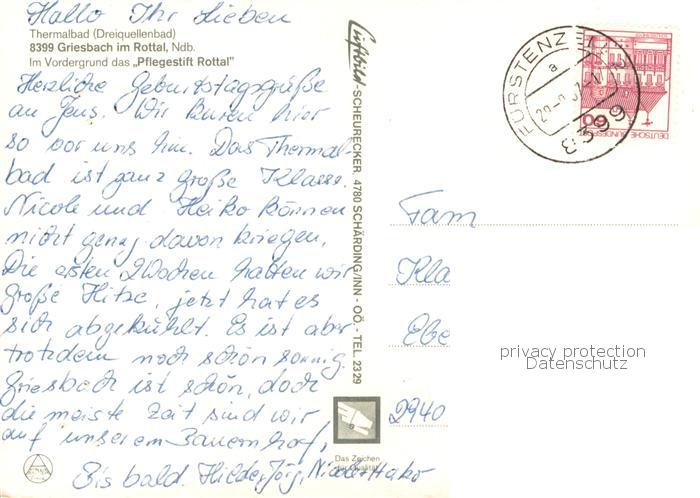 Hallo Ihr Lieben
Thermalbad (Dreiquellenbad)
8399 Griesbach im Rottal, Ndb.
Im Vordergrund das „Pflegestift Rottal"
Herzliche Geburtstagsgrüße
an Jens. Wir kuren hier
so vor uns hin. Das Thermal-
bad ist ganz große Klasse.
Nicole und Heiko können
nicht genug davon kriegen.
Die ersten 2 Wochen hatten wir
große Hitze, jetzt hat es
sich abgekühlt. Es ist aber
trotzdem noch schön sonnig.
Griesbach ist schön, doch
die meiste Zeit sind wir
auf unserem Bauernhof,
Bis bald. Hilde, Jörg, Nicole + Heiko
Luftbild-SCHEURECKER, 4780 SCHÄRDING/INN - OÖ. - TEL. 2329
Das Zeichen
für Qualität
FÜRSTENZELL
a
8399
60
DEUTSCHE BUNDESPOST
Fam
Kla
Ebe
2940
privacy protection
Datenschutz